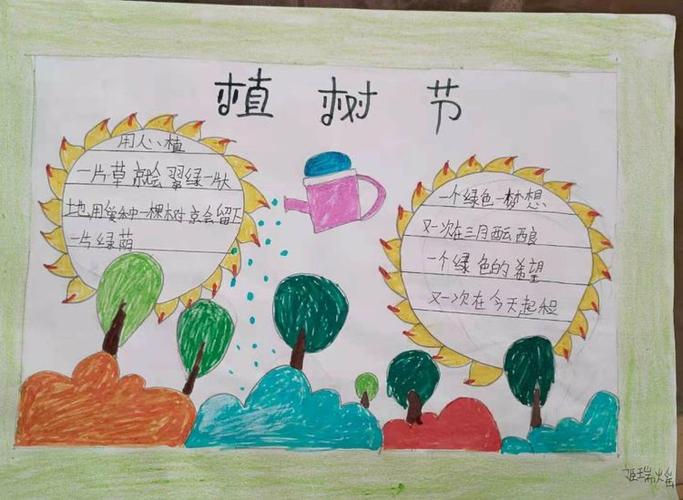 植树节
用心植
一片草就会翠绿一大
地,用爱种一棵树就会留下
一片绿荫
一个绿色一梦想
又一次在三月酝酿
一个绿色的希望
又一次在今天起程